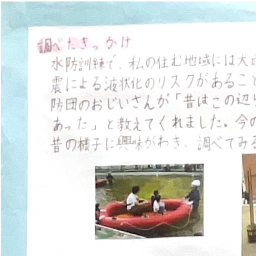 調べたきっかけ
水防訓練で、私の住む地域には大
震による液状化のリスクがあること
防団のおじいさんが「昔はこの辺り
あった」と教えてくれました。今の
昔の様子に興味がわき、調べてみる